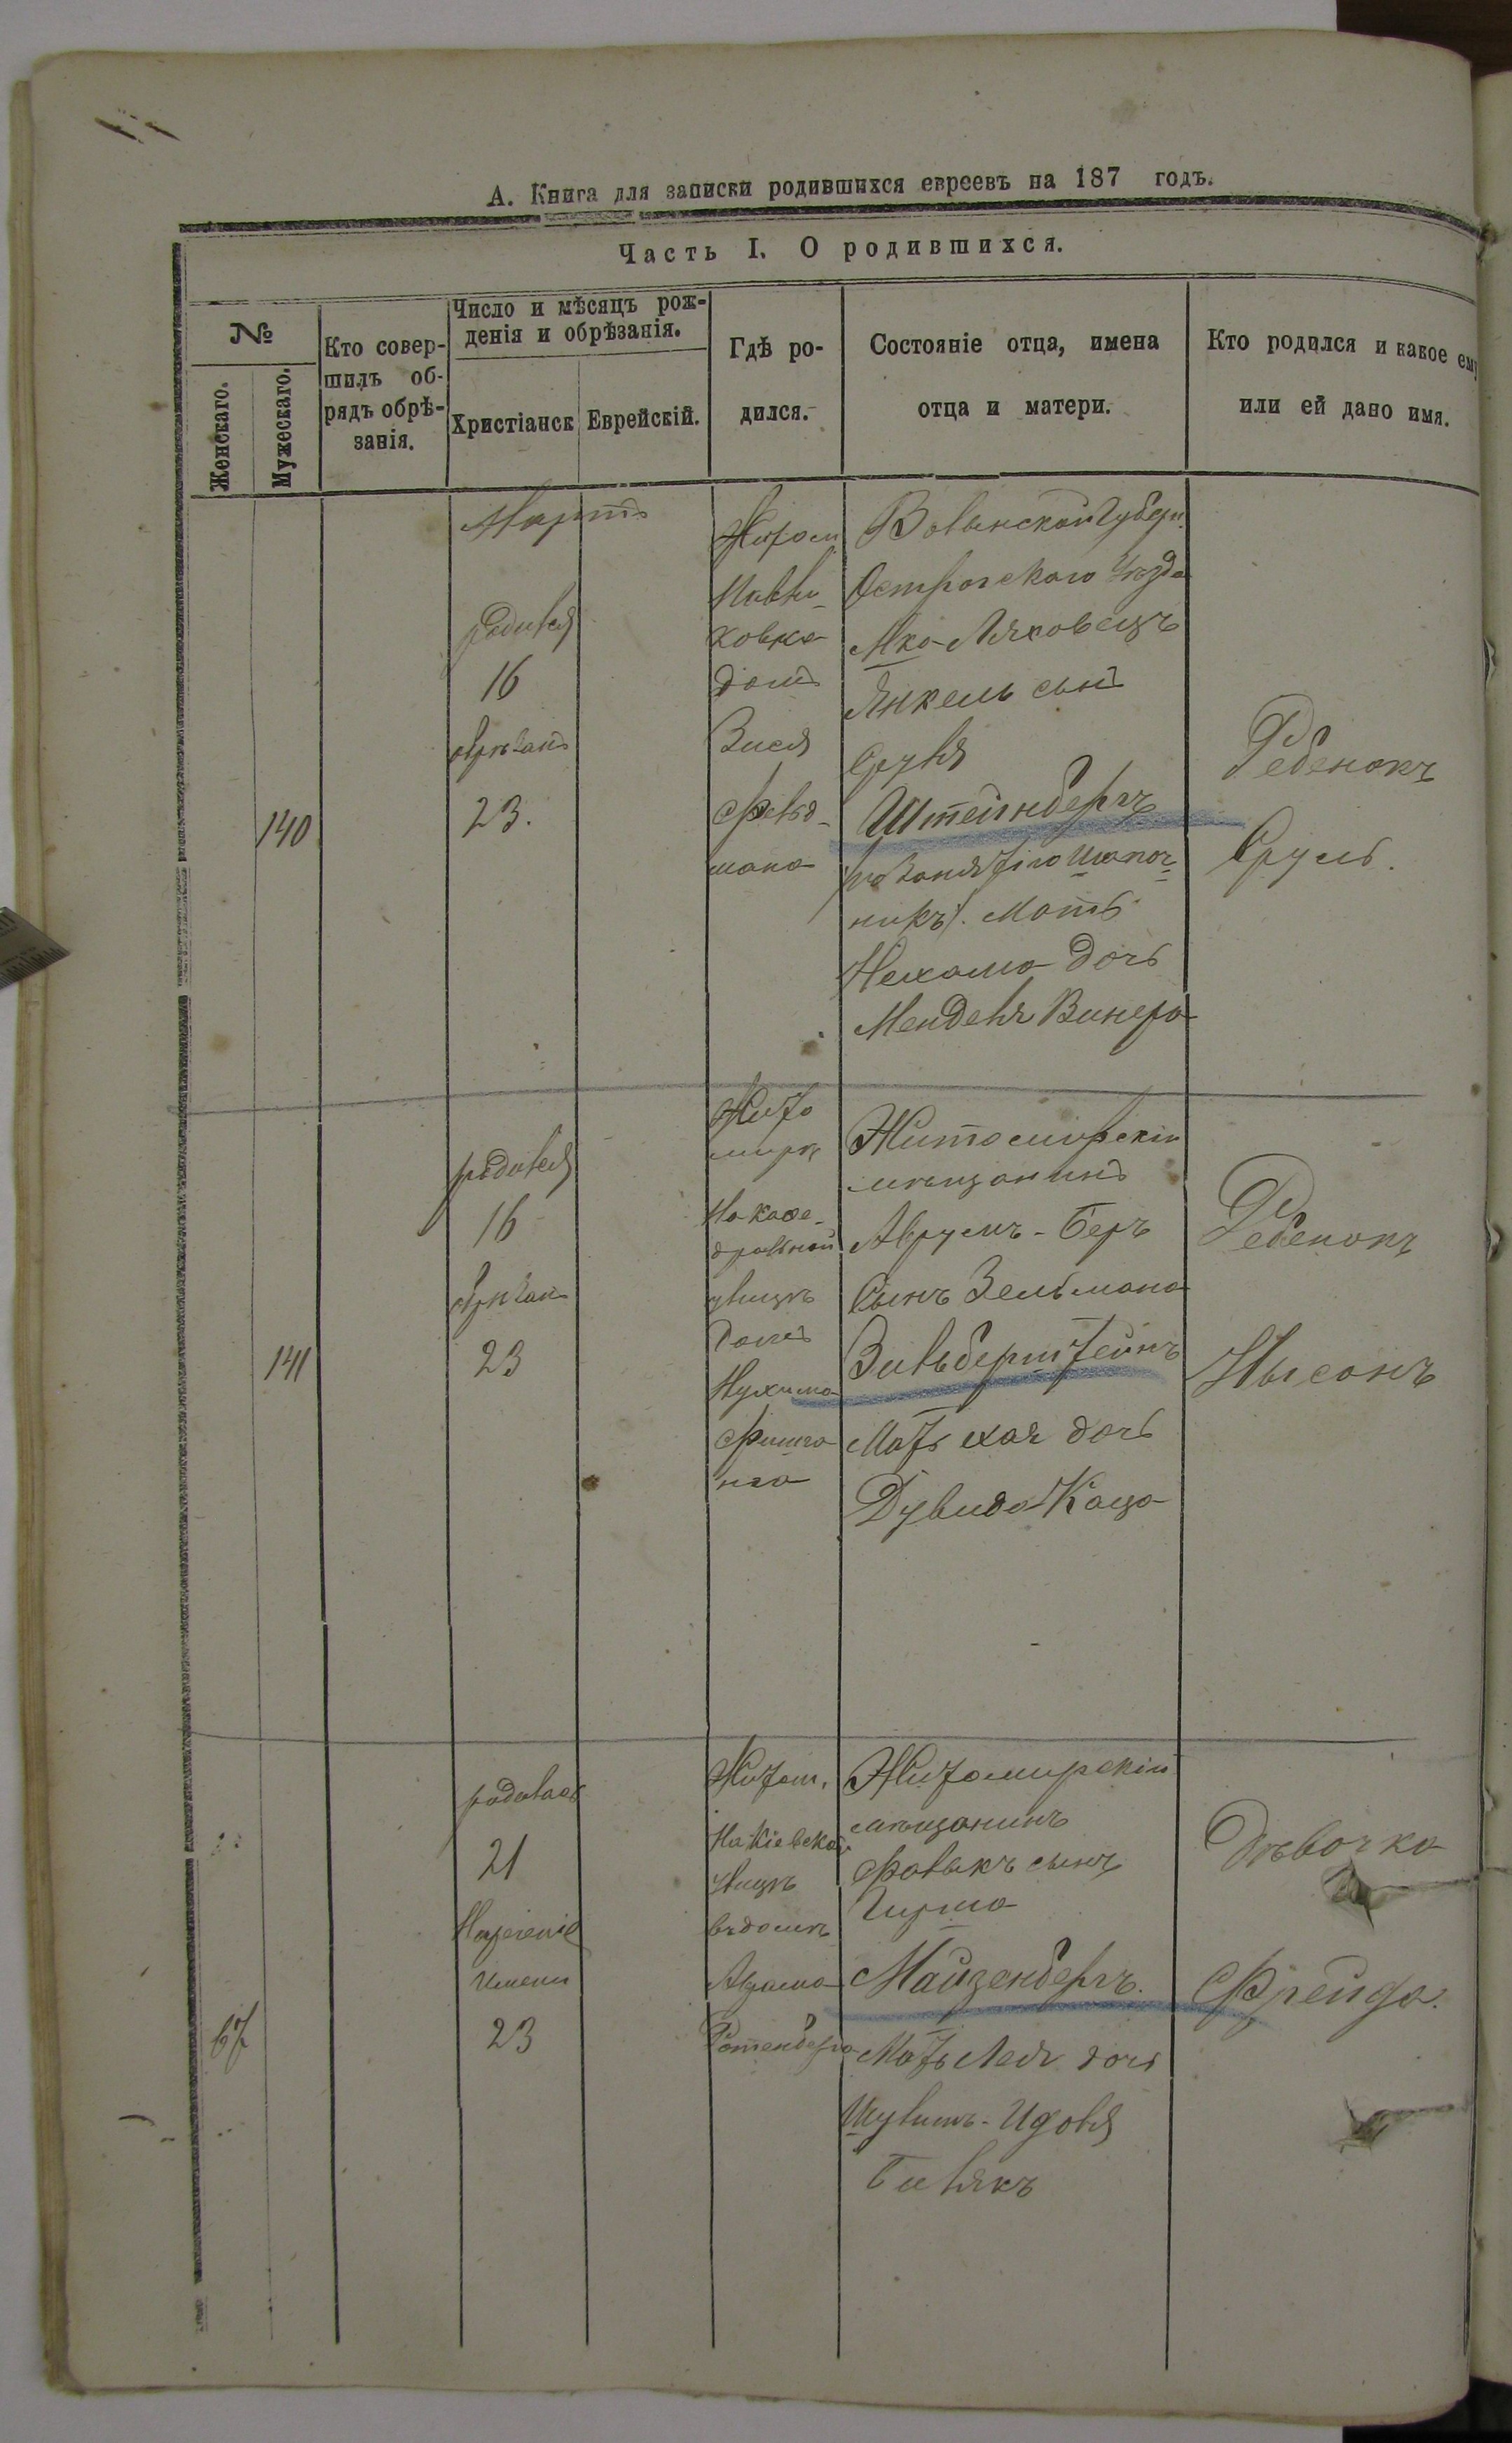 А. Книга для записки родившихся евреевъ на 187 годъ.
Часть I. О родившихся.
№
Женскаго.
Мужескаго.
Кто совер-
шилъ об-
рядъ обрѣ-
занія.
Число и мѣсяцъ рож-
денія и обрѣзанія.
Христіанск
Еврейскій.
Гдѣ ро-
дился.
Состояніе отца, имена
отца и матери.
Кто родился и какое ему
или ей дано имя.
140
Мартъ
родился
16
обрѣзанъ
23.
Житом
ковка
домъ
Зися
Фельд-
мана
Волынской Губерн.
Острогскаго Уѣзда
Мко Ляховецъ
Янкель сынъ
Сруля
Штейнбергъ
никъ). Мать
Нехама дочь
Менделя Винера
Ребенокъ
Сруль.
141
родился
16
обрѣзанъ
23
Жито
мирѣ
На Кафе-
дральной
улицѣ
домъ
Нухима
Житомирскій
мѣщанинъ
Аврумъ-Беръ
Сынъ Зельмана
Зильберштейнъ
Мать Хая дочь
Дувида Каца
Ребенокъ
Нысонъ
67
родилась
21
Нареченіе
имени
23
Житом.
На Кіевской
улицѣ
въ домѣ
Ротенберга
Житомирскій
мѣщанинъ
Фалыкъ сынъ
Гирша
Майзенбергъ.
Мать Лея дочь
Дѣвочка
Фрейда.